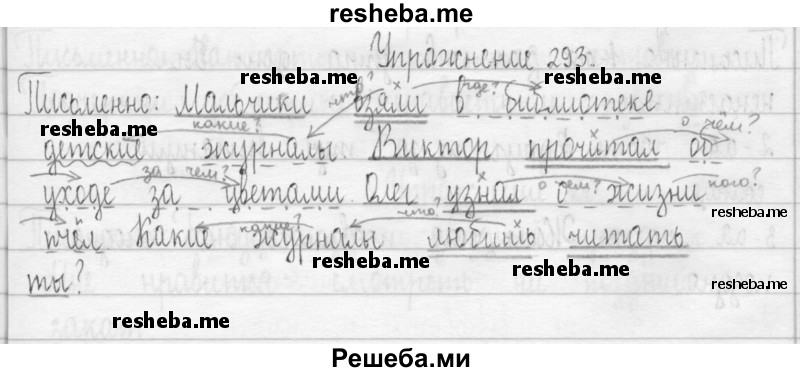 resheba.me
Упражнение 293.
resheba.me
resheba.me
что? где?
Письменно: Мальчики взяли в библиотеке
resheba.me
какие? о чём?
детские журналы Виктор прочитал об
за чем? о чём? кого?
уходе за цветами. Олег узнал о жизни
resheba.me
какие? что?
пчёл Какие журналы любишь читать
resheba.me
resheba.me
ты?
resheba.me
resheba.me
Решеба.ми